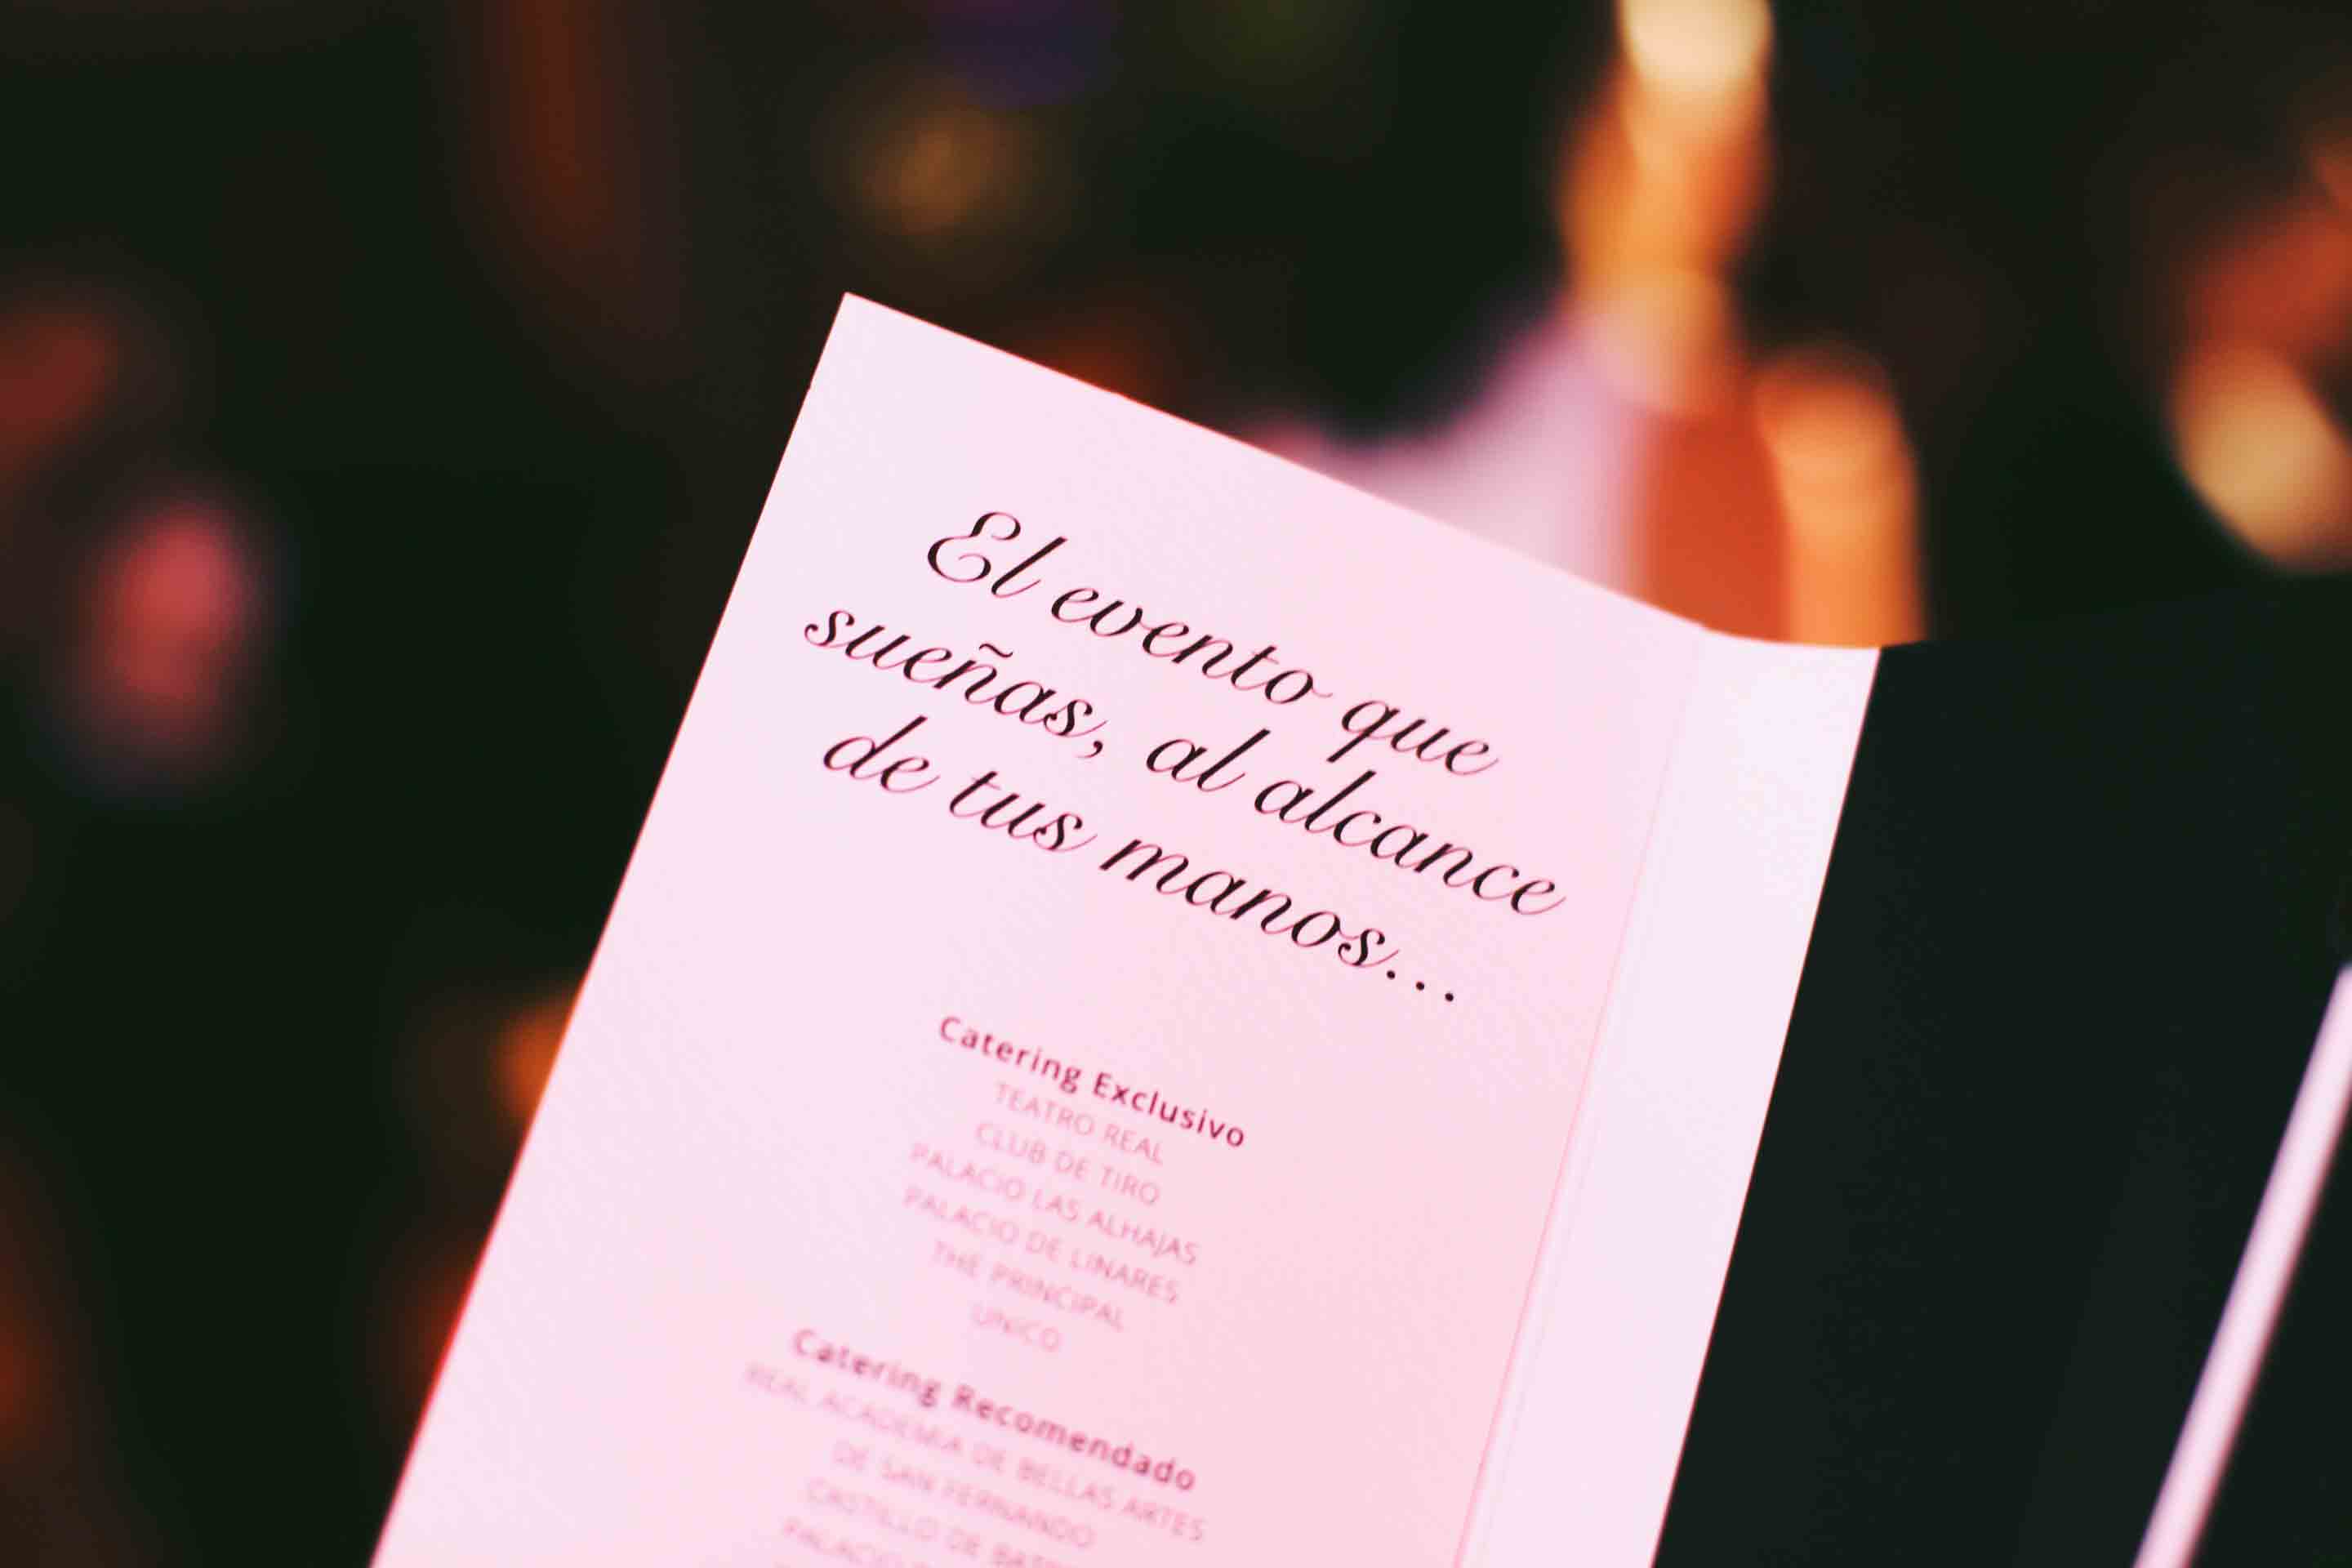 El evento que
sueñas, al alcance
de tus manos...
Catering Exclusivo
TEATRO REAL
CLUB DE TIRO
PALACIO LAS ALHAJAS
PALACIO DE LINARES
THE PRINCIPAL
UNICO
Catering Recomendado
REAL ACADEMIA DE BELLAS ARTES
DE SAN FERNANDO
CASTILLO DE
PALACIO